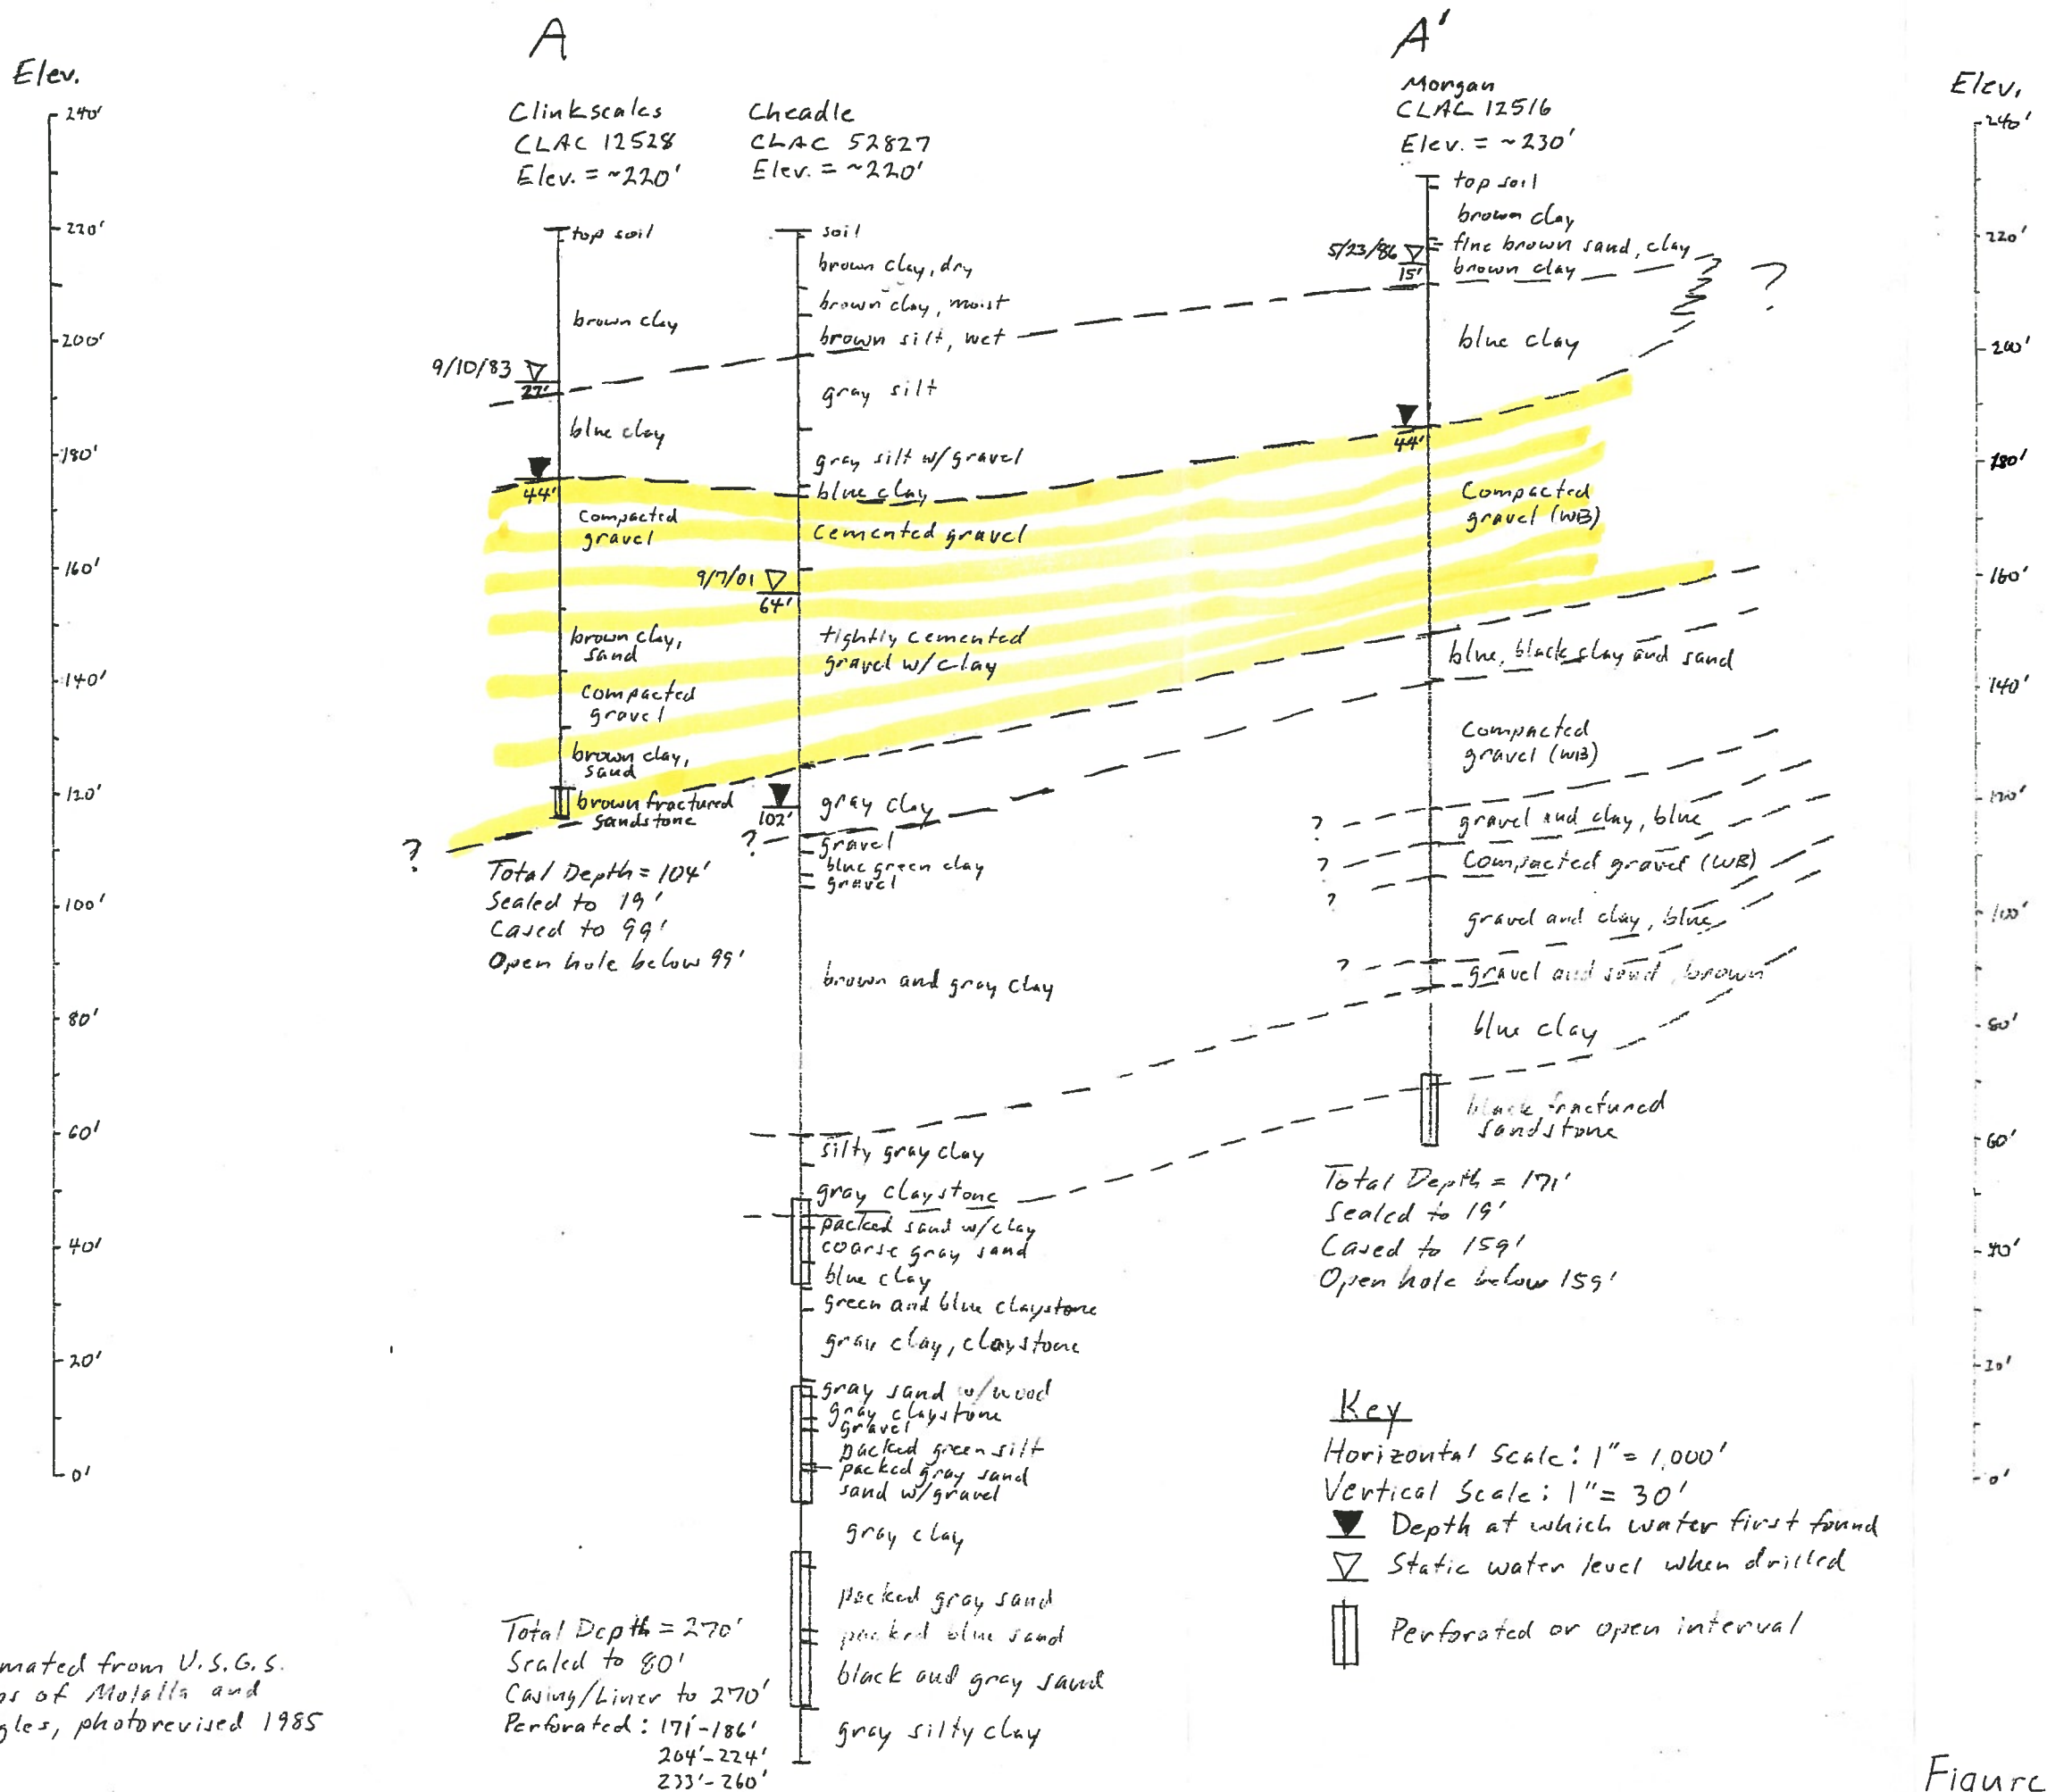 A
A'
Elev.
240'
220'
200'
180'
160'
140'
120'
100'
80'
60'
40'
20'
0'
Clinkscales
CLAC 12528
Elev. = ~220'
top soil
brown clay
9/10/83
27'
blue clay
44'
Compacted
gravel
brown clay,
sand
compacted
gravel
brown clay,
sand
brown fractured
sandstone
?
Total Depth = 104'
Sealed to 19'
Cased to 99'
Open hole below 99'
Cheadle
CLAC 52827
Elev. = ~220'
soil
brown clay, dry
brown clay, moist
brown silt, wet
gray silt
gray silt w/gravel
blue clay
Cemented gravel
9/7/01
64'
tightly cemented
gravel w/clay
102'
gray clay
?
gravel
blue green clay
gravel
brown and gray clay
silty gray clay
gray claystone
packed sand w/clay
coarse gray sand
blue clay
green and blue claystone
gray clay, claystone
gray sand w/wood
gray claystone
gravel
packed green silt
packed gray sand
sand w/gravel
gray clay
packed gray sand
packed blue sand
black and gray sand
gray silty clay
Total Depth = 270'
Sealed to 80'
Casing/Liner to 270'
Perforated: 171'-186'
204'-224'
233'-260'
Morgan
CLAC 12516
Elev. = ~230'
top soil
brown clay
fine brown sand, clay
5/23/86
15'
brown clay
?
blue clay
44'
Compacted
gravel (WB)
blue, black clay and sand
Compacted
gravel (WB)
?
gravel and clay, blue
?
Compacted gravel (WB)
?
gravel and clay, blue
?
gravel and sand, brown
blue clay
black fractured
sandstone
Total Depth = 171'
Sealed to 19'
Cased to 159'
Open hole below 159'
Elev.
240'
220'
200'
180'
160'
140'
120'
100'
80'
60'
40'
20'
0'
Key
Horizontal Scale: 1" = 1,000'
Vertical Scale: 1" = 30'
Depth at which water first found
Static water level when drilled
Perforated or open interval
mated from U.S.G.S.
ps of Molalla and
gles, photorevised 1985
Figure